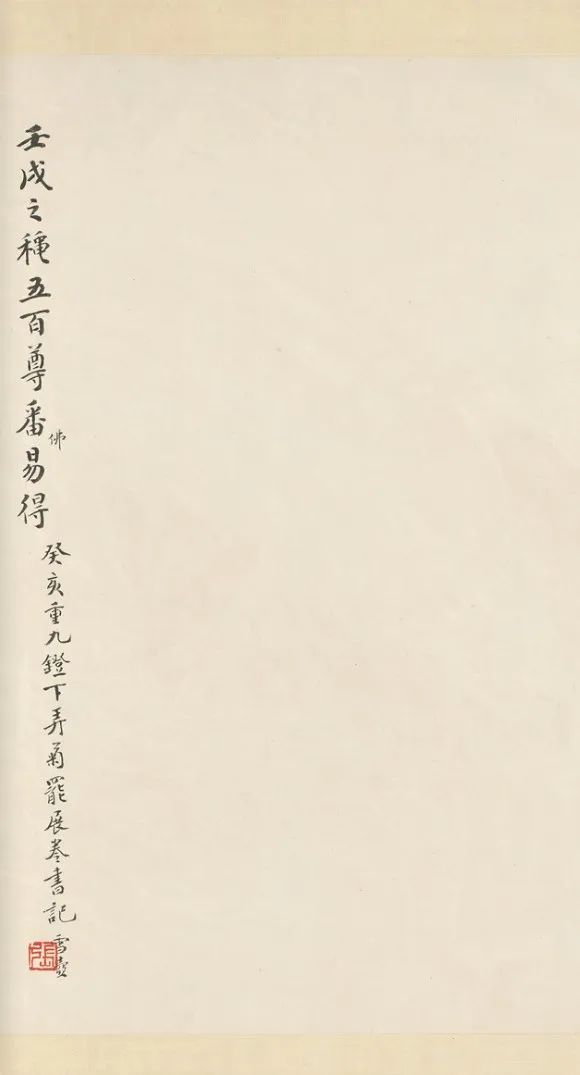 壬戌之穐五百尊番易得
佛
癸亥重九鐙下弄菊罷展卷書記
張